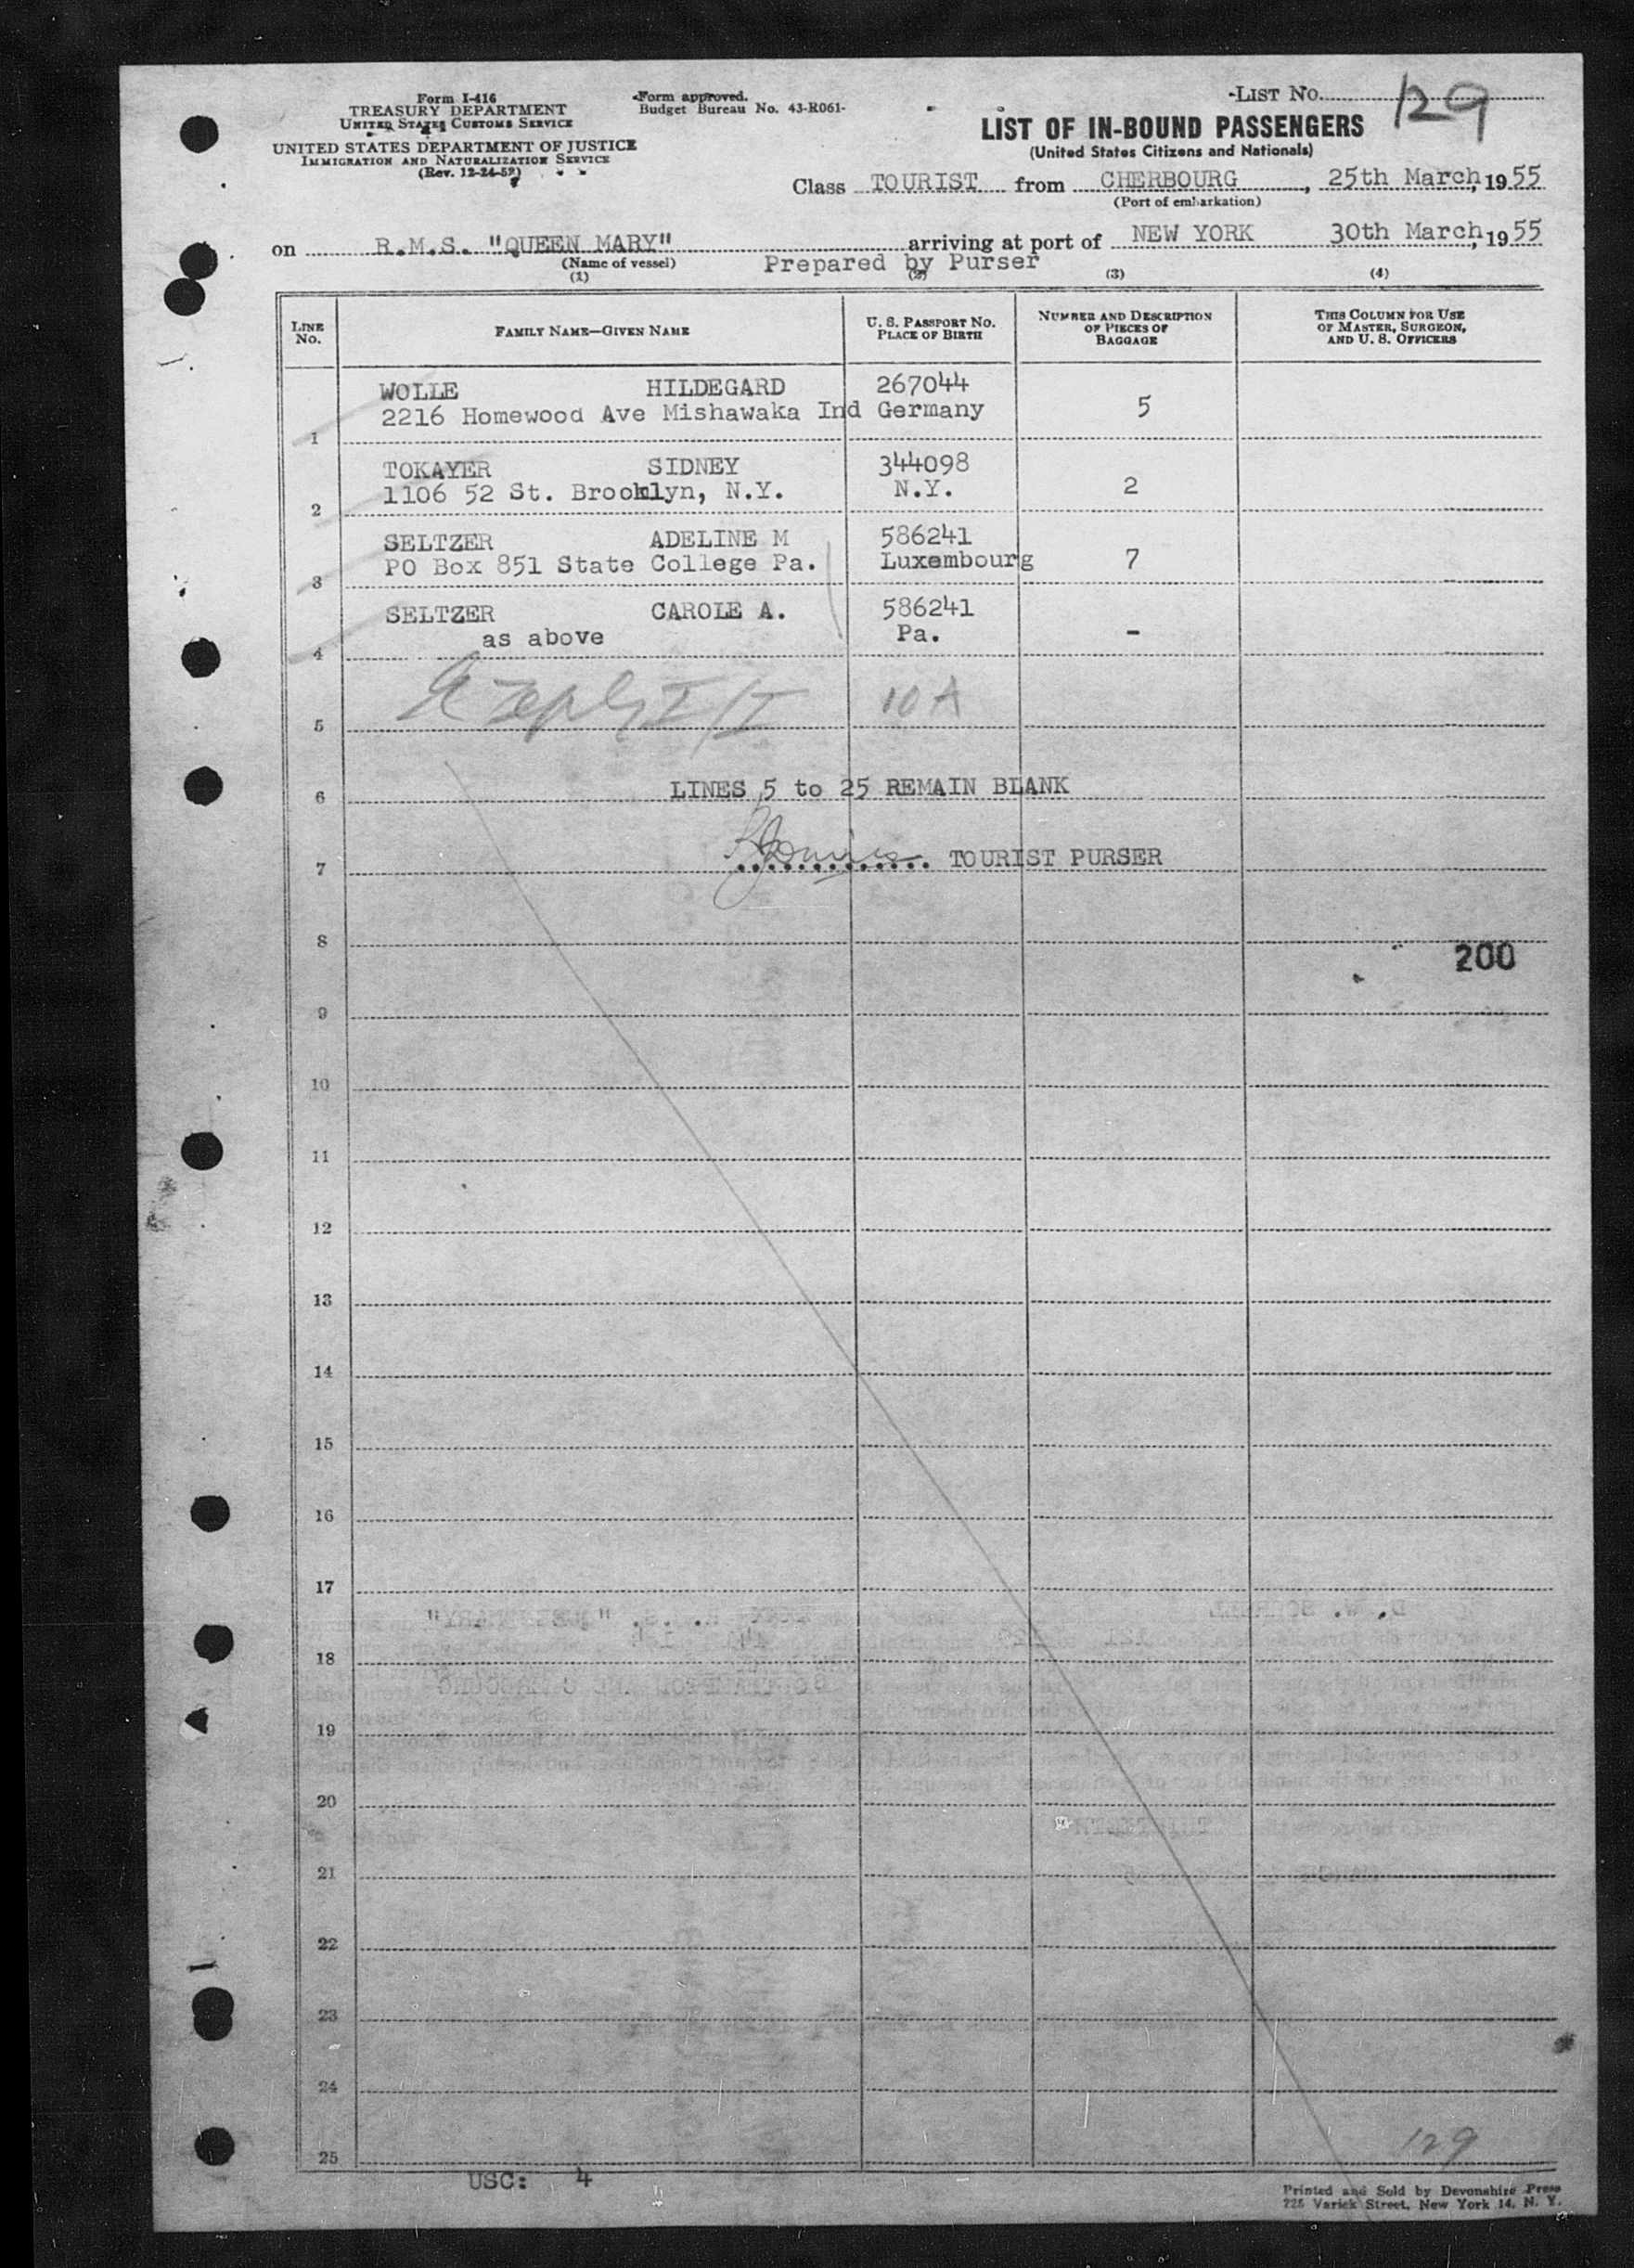 Form I-416
TREASURY DEPARTMENT
UNITED STATES CUSTOMS SERVICE
UNITED STATES DEPARTMENT OF JUSTICE
IMMIGRATION AND NATURALIZATION SERVICE
(Rev. 12-24-52)
Form approved.
Budget Bureau No. 43-R061-
LIST NO. 129
LIST OF IN-BOUND PASSENGERS
(United States Citizens and Nationals)
Class TOURIST from CHERBOURG, 25th March, 1955
(Port of embarkation)
on R.M.S. "QUEEN MARY" arriving at port of NEW YORK 30th March, 1955
(Name of vessel) Prepared by Purser
(1) (2) (3) (4)
LINE NO. FAMILY NAME—GIVEN NAME U. S. PASSPORT NO. PLACE OF BIRTH NUMBER AND DESCRIPTION OF PIECES OF BAGGAGE THIS COLUMN FOR USE OF MASTER, SURGEON, AND U. S. OFFICERS
WOLLE HILDEGARD 267044
2216 Homewood Ave Mishawaka Ind Germany 5
1
TOKAYER SIDNEY 344098
1106 52 St. Brooklyn, N.Y. N.Y. 2
2
SELTZER ADELINE M 586241
PO Box 851 State College Pa. Luxembourg 7
3
SELTZER CAROLE A. 586241
as above Pa. -
4
10 A
5
LINES 5 to 25 REMAIN BLANK
6
TOURIST PURSER
7
8
200
9
10
11
12
13
14
15
16
17
18
19
20
21
22
23
24
129
25
USC: 4
Printed and Sold by Devonshire Press
225 Varick Street, New York 14, N. Y.